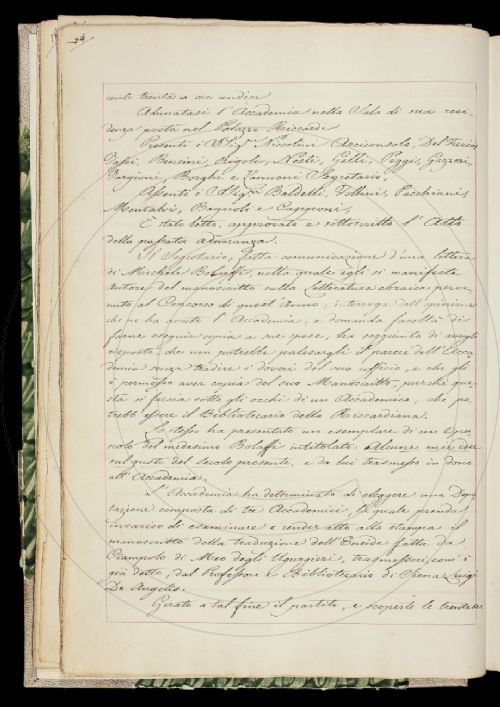 cento trenta a ore undici
Adunatasi l'Accademia nella Sala di sua resi-
denza posta nel Palazzo Riccardi
Presenti i SS.ri Niccolini Arciconsolo, Del Furia,
Fossi, Bencini, Rigoli, Nesti, Gelli, Poggi, Gazzeri,
Borghi e Zannoni Segretario,
Assenti i Baldelli, Follini, Pacchiani,
Montalvi, Bagnoli e Capponi,
È stato letto, approvato e sottoscritto l'Atto
della passata adunanza.
Il Segretario, fatta comunicazione d'una lettera
di Michele Bolaffi, nella quale egli si manifesta
autore del manoscritto sulla Letteratura ebraica perve-
nuto al Concorso di quest'anno, interroga dell'opinione
che ne ha avuto l'Accademia, e domanda facoltà di
farne eseguir copia a sue spese, ha soggiunto di avergli
risposto, che non potrebbe palesargli il parere dell'Acca-
demia senza tradire i doveri del suo uffizio, e che gli
è permesso aver copia del suo Manoscritto, purché que-
sta si faccia sotto gli occhi di un Accademico, che po-
trebb'essere il Bibliotecario della Riccardiana.
Lo stesso ha presentato un esemplare di un opu-
scolo del medesimo Bolaffi intitolato: Alcune mie idee
sul gusto del Secolo presente, e da lui trasmesso in dono
all'Accademia.
L'Accademia ha determinato di eleggere una Depu-
tazione composta di tre Accademici, la quale prenda
incarico di esaminare e render atto alla stampa il
manoscritto della traduzione dell'Eneide fatta da
Ciampolo di Meo degli Ugurgieri, trasmessoci, com'è
già detto, dal Professore e Bibliotecario di Siena Luigi
De Angelis.
Girato a tal fine il partito, e scoperte le